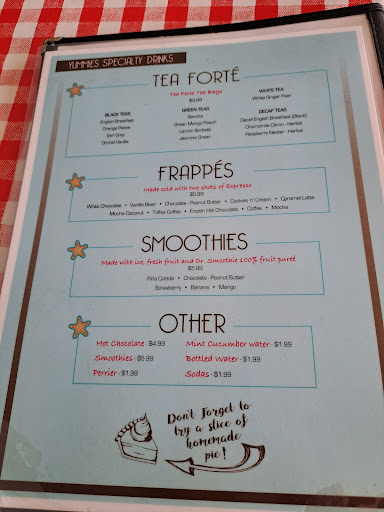 YUMMIES SPECIALTY DRINKS
TEA FORTÉ
Tea Forte Tea Bags
$3.99
BLACK TEAS
English Breakfast
Orange Pekoe
Earl Grey
Orchid Vanilla
GREEN TEAS
Sencha
Green Mango Peach
Lemon Sorbetti
Jasmine Green
WHITE TEA
White Ginger Pear
DECAF TEAS
Decaf English Breakfast (Black)
Chamomile Citron - Herbal
Raspberry Nectar - Herbal
FRAPPÉS
Made cold with two shots of Espresso
$5.99
White Chocolate • Vanilla Bean • Chocolate - Peanut Butter • Cookies 'n' Cream • Caramel Latte
Mocha Coconut • Toffee Coffee • Frozen Hot Chocolate • Coffee • Mocha
SMOOTHIES
Made with ice, fresh fruit and Dr. Smoothie 100% fruit pureé
$5.99
Piña Colada • Chocolate - Peanut Butter
Strawberry • Banana • Mango
OTHER
Hot Chocolate - $4.99
Smoothies - $5.99
Perrier - $1.99
Mint Cucumber water - $1.99
Bottled Water - $1.99
Sodas - $1.99
Don't forget to
try a slice of
homemade
pie!